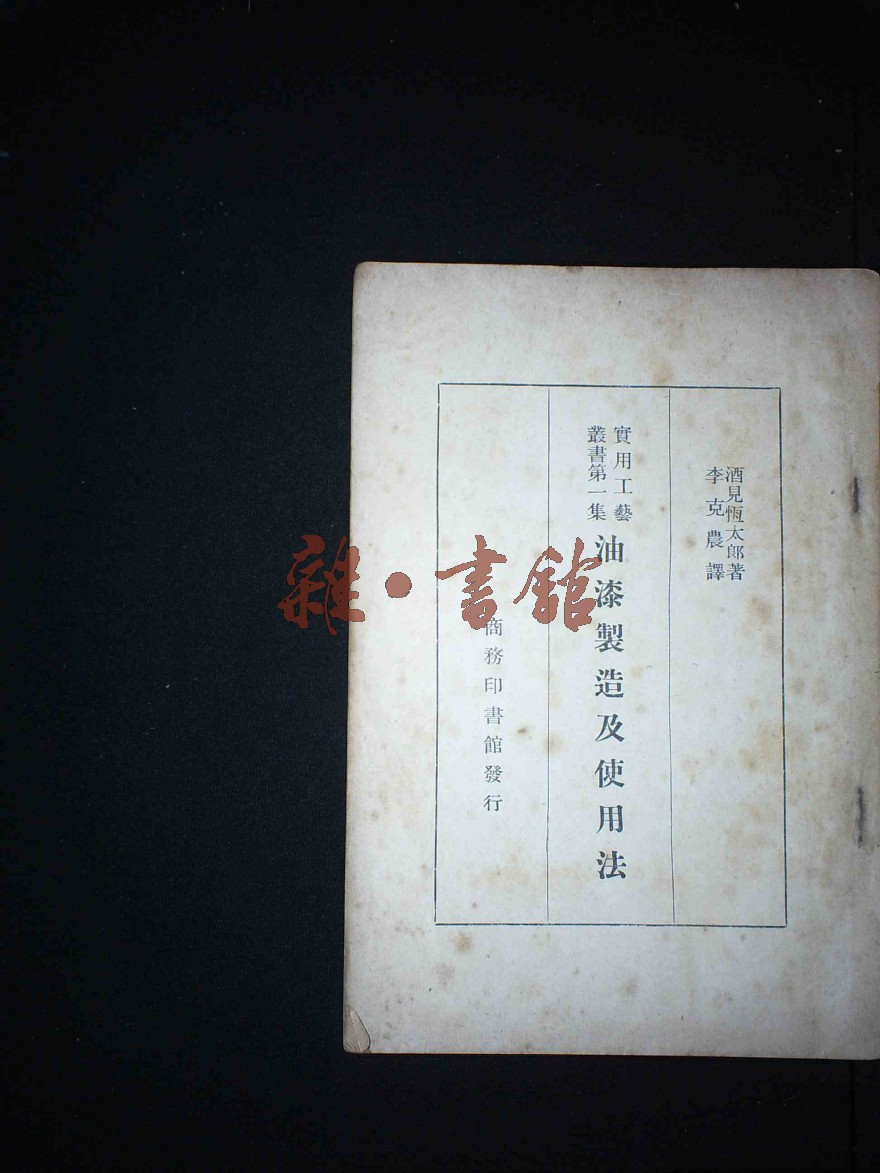 酒見恆太郎著
李克農譯
實用工藝
叢書第一集
油漆製造及使用法
商務印書館發行
雜·書館